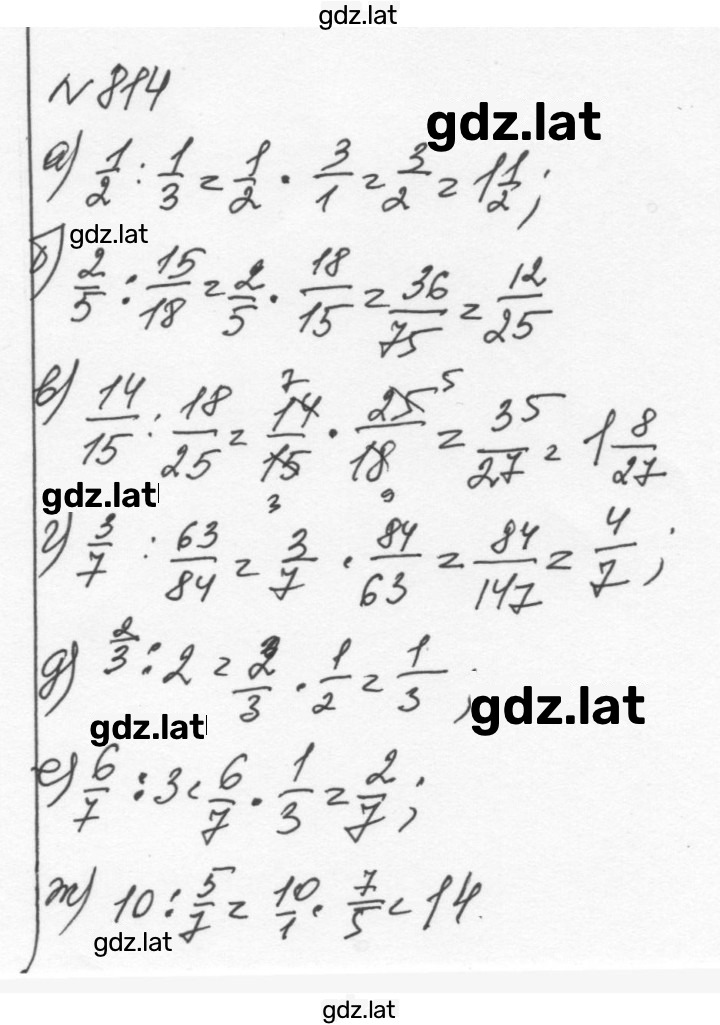 gdz.lat
№ 814
gdz.lat
а) 1/2 : 1/3 = 1/2 · 3/1 = 3/2 = 1 1/2 ;
gdz.lat
б) 2/5 : 15/18 = 2/5 · 18/15 = 36/75 = 12/25
в) 14/15 : 18/25 = 14 7/15 3 · 25 5/18 9 = 35/27 = 1 8/27
gdz.lat
г) 3/7 : 63/84 = 3/7 · 84/63 = 84/147 = 4/7 ;
д) 2/3 : 2 = 2/3 · 1/2 = 1/3 ;
gdz.lat
gdz.lat
е) 6/7 : 3 = 6/7 · 1/3 = 2/7 ;
ж) 10 : 5/7 = 10/1 · 7/5 = 14
gdz.lat
gdz.lat